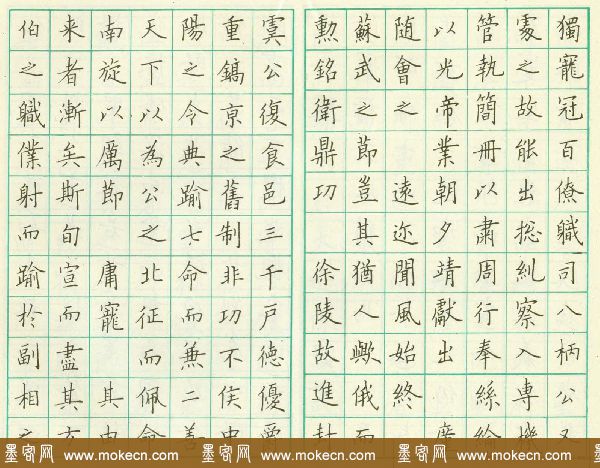 獨寵冠百僚職司八柄公又
處之故能出總糺察入專機
管執簡冊以肅周行奉絲綸
以光帝業朝夕靖獻出
随會之遠迩聞風始終
蘇武之節豈其猶人歟俄而
勲銘衛鼎功徐陵故進封
虞公復食邑三千戶德優
重鎬京之舊制非功不侯
陽之令典踰七命而兼二善
天下以為公之北征而佩命
南旋以厲節庸寵其由
来者漸矣斯旬宣而盡其
伯之職僕射而踰於副相
墨客网 www.mokecn.com 墨客网 www.mokecn.com 墨客网 www.mokecn.com